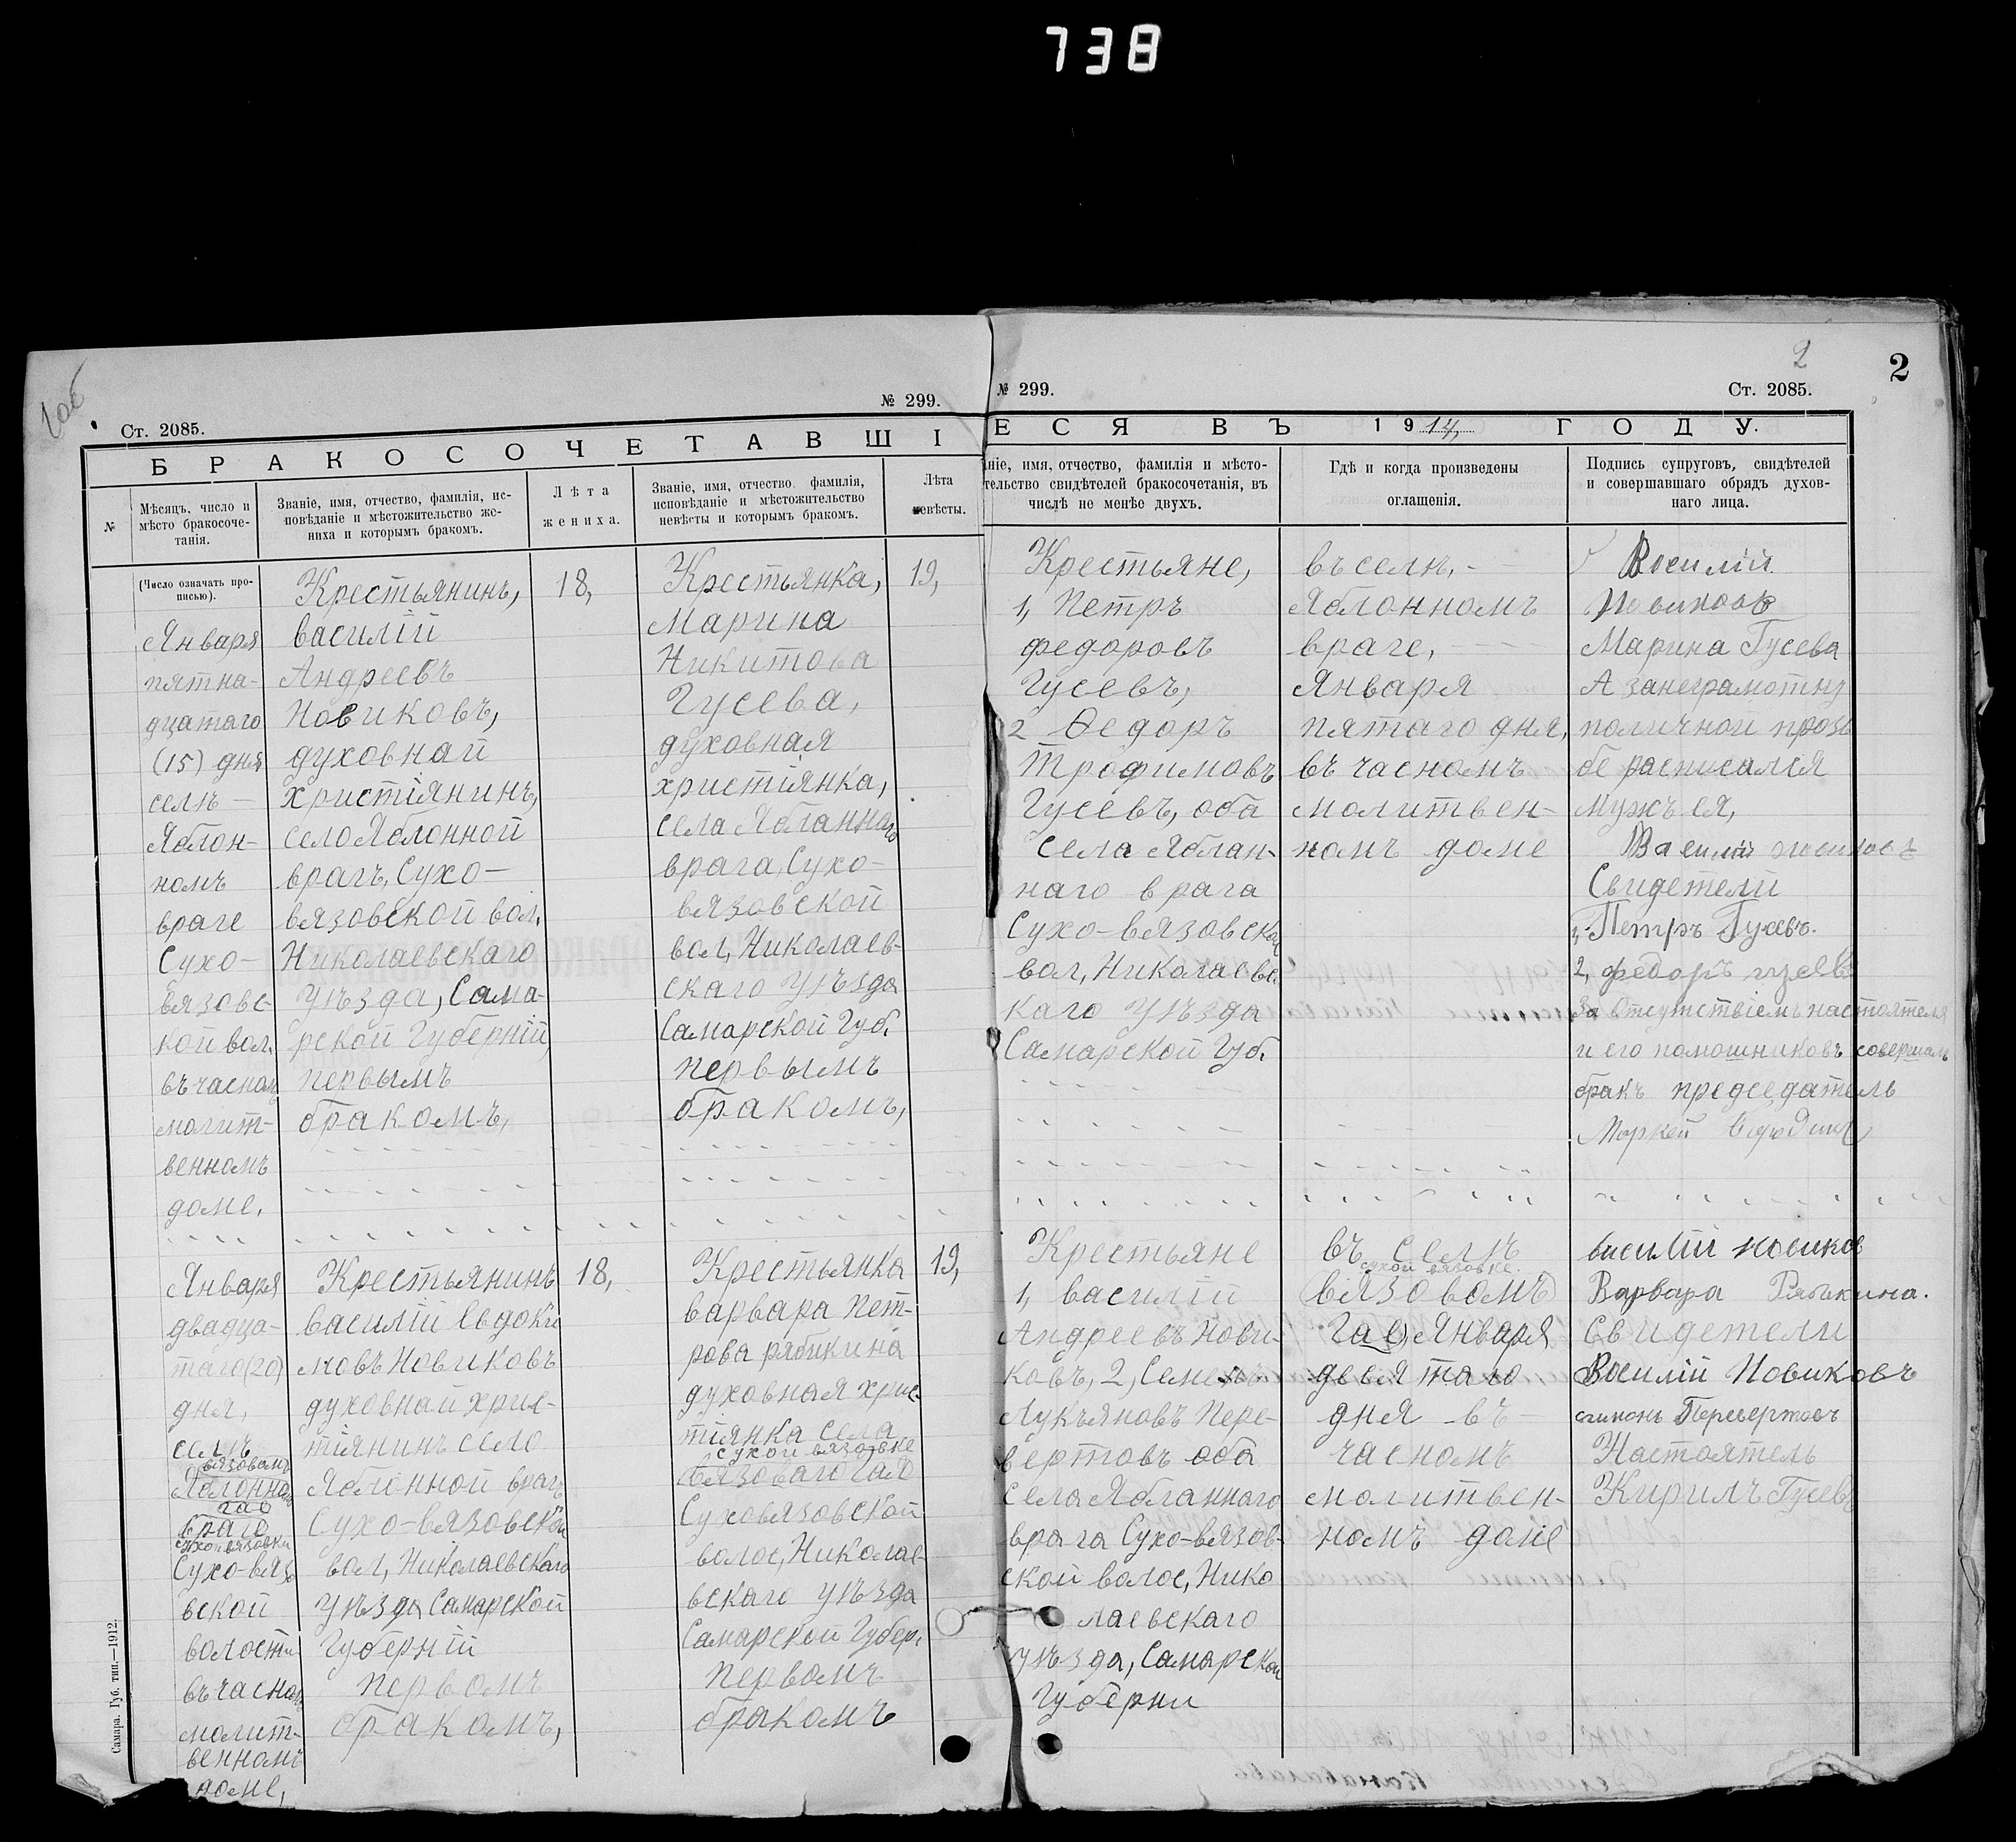 738
1об
2
2
Ст. 2085.
№ 299.
№ 299.
Ст. 2085.
БРАКОСОЧЕТАВШІЕСЯ ВЪ 1914, ГОДУ.
№
Мѣсяцъ, число и
мѣсто бракосоче-
танія.
Званіе, имя, отчество, фамилія, ис-
повѣданіе и мѣстожительство же-
ниха и которымъ бракомъ.
Лѣта
жениха.
Званіе, имя, отчество, фамилія,
исповѣданіе и мѣстожительство
невѣсты и которымъ бракомъ.
Лѣта
невѣсты.
ніе, имя, отчество, фамилія и мѣсто-
тельство свидѣтелей бракосочетанія, въ
числѣ не менѣе двухъ.
Гдѣ и когда произведены
оглашенія.
Подпись супруговъ, свидѣтелей
и совершавшаго обрядъ духов-
наго лица.
(Число означать про-
писью).
Января
пятна-
дцатаго
(15) дня
селѣ
Яблон-
номъ
враге
Сухо-
вязовс-
кой вол.
въ часном
молит-
венномъ
доме.
Крестьянинъ,
василій
Андреевъ
Новиковъ,
духовнай
христіянинъ,
село Яблонной
врагъ, Сухо-
вязовской вол,
Николаевскаго
уѣзда, Сама-
рской Губерній,
первымъ
бракомъ,
18,
Крестьянка,
Марина
Никитова
Гусева,
духовная
христіянка,
села Ябланнаго
врага, Сухо-
вязовской
вол, Николаев-
скаго уѣзда
Самарской Губ.
первымъ
бракомъ,
19,
Крестьяне,
1, Петръ
федоровъ
Гусевъ,
2 Ѳедоръ
Трофимовъ
Гусевъ, оба
села Яблан-
наго врага
Сухо-вязовской
вол, Николаевс
каго уѣзда
Самарской Губ.
въ селѣ,
Яблонномъ
враге,
Января
пятаго дня,
въ часномъ
молитвен-
номъ доме
Василій
Новиковъ
Марина Гусева
А занеграмотну
поличной прозь
бе расписался
мужъ ея,
Василій новиковъ
Свидетели
1, Петръ Гусевъ.
2, федоръ гусевъ
За Отсутствіемъ настоятеля
и его помошниковъ совершалъ
бракъ председатель
Января
двадца-
таго (20)
дня,
селѣ
вязовомъ
Яблонном
гаю
враго
сухой вязовки
Сухо-вязо
вской
волости
въ часном
молит-
венномъ
доме,
Крестьянинъ
василій Евдоки
мовъ Новиковъ
духовнай хрис-
тіянинъ село
Яблонной врагъ
Сухо-вязовской
вол, Николаевскаго
уѣзда Самарской
Губерній
первомъ
бракомъ,
18,
Крестьянка
варвара Пет-
рова рябикина
духовная хрис
тіянка села
сухой вязовке
вязоваго гая
Суховязовской
волос, Николае-
вскаго уѣзда
Самарской Губер.
первомъ
бракомъ
19,
Крестьяне
1, василій
Андреевъ Нови-
ковъ, 2, Семенъ
Лукъяновъ Пере-
вертовъ оба
села Ябланнаго
врага Сухо-вязов-
ской волос, Нико
лаевскаго
уѣзда, Самарской
Губерни
въ селѣ
сухой вязовке.
(вязовомъ)
Гаю, Января
девятаго
дня въ
часномъ
молитвен-
номъ доме
василій новиков
Варвара Рябикина.
Свидетели
Василій Новиковъ
Настоятель
Кирилъ Гусевъ
Самара. Губ. тип.—1912.